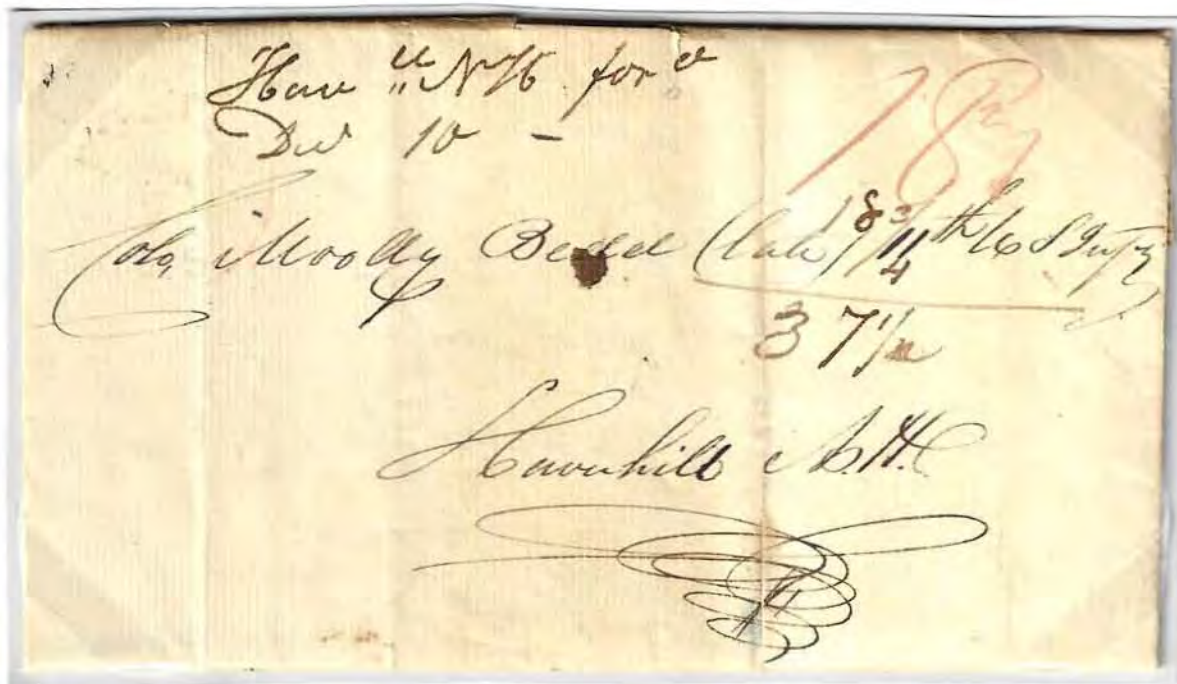 Have ll N H for d
Dec 10 -
Colo, Moody Bedel (late) 11th U S Infty
18 3/4
37 1/2
Haverhill N.H.